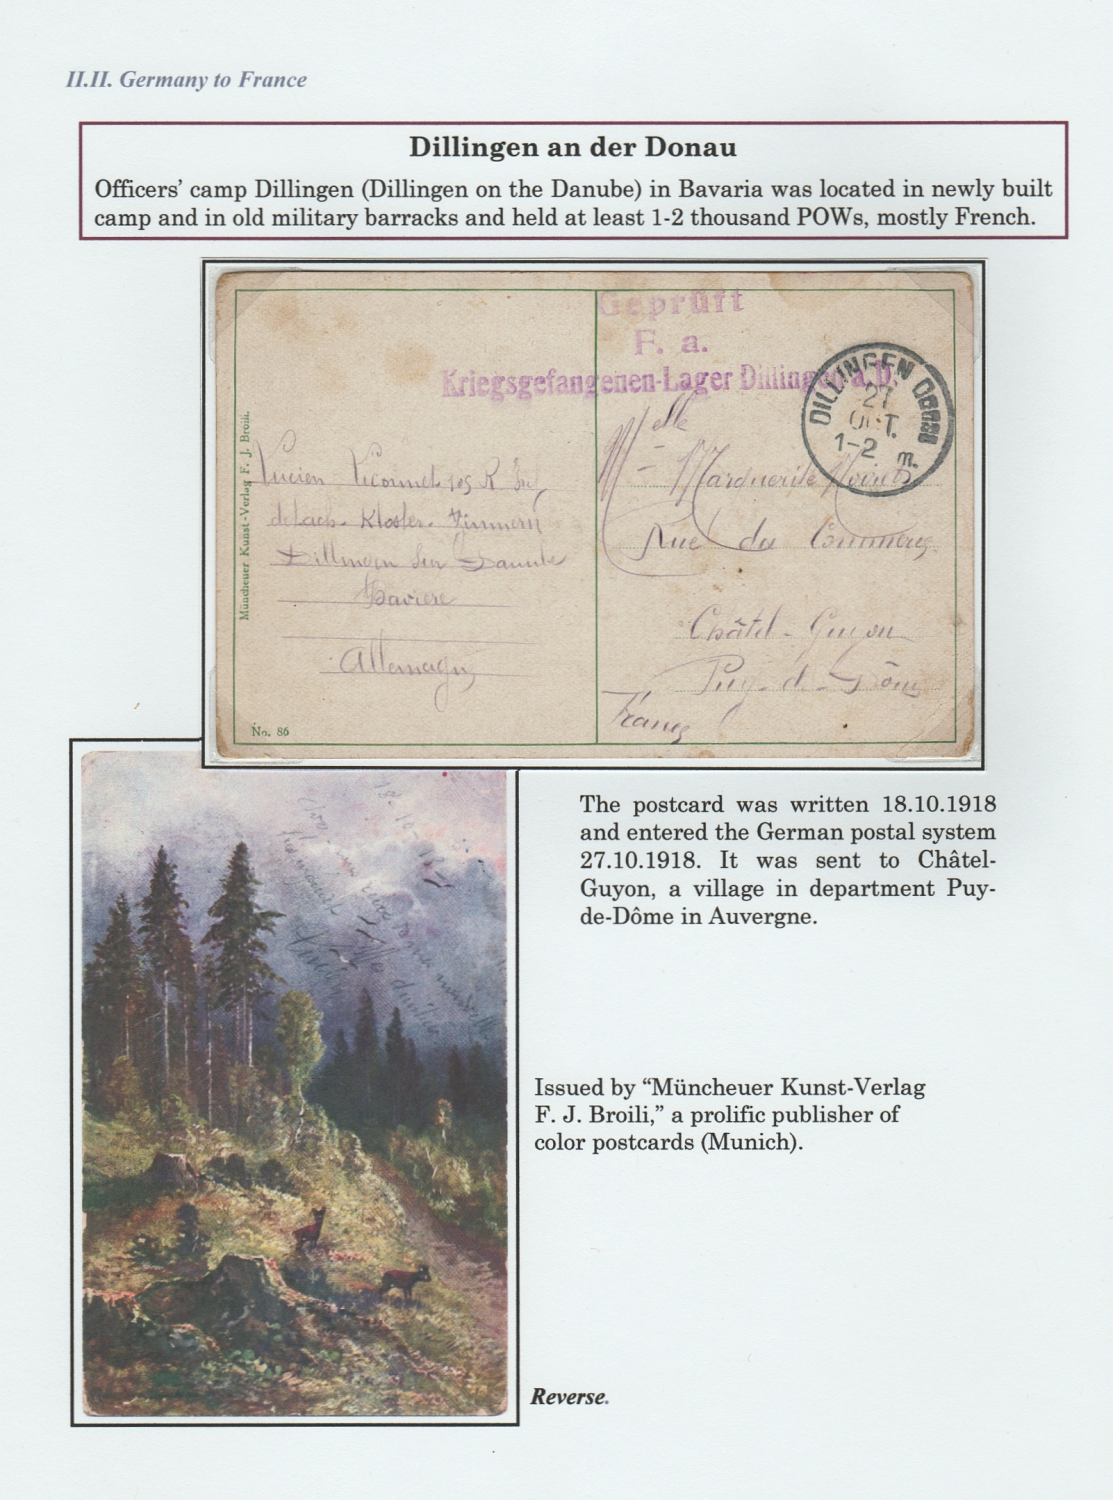 II.II. Germany to France
Dillingen an der Donau
Officers’ camp Dillingen (Dillingen on the Danube) in Bavaria was located in newly built
camp and in old military barracks and held at least 1-2 thousand POWs, mostly French.
Geprüft
F. a.
Kriegsgefangenen-Lager Dillingen a. D.
DILLINGEN
27
OCT.
1-2 m.
Müncheuer Kunst-Verlag F. J. Broili.
Lucien
Kloster-Zimmern
Dillingen Danube
Baviere
Allemagne
No. 86
Melle Marguerite
Rue du Commerce
Châtel-Guyon
Puy-de-Dôme
France
18-10-
The postcard was written 18.10.1918
and entered the German postal system
27.10.1918. It was sent to Châtel-
Guyon, a village in department Puy-
de-Dôme in Auvergne.
Issued by “Müncheuer Kunst-Verlag
F. J. Broili,” a prolific publisher of
color postcards (Munich).
Reverse.